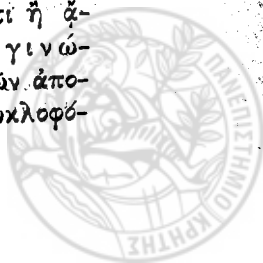 τί ἢ ἄ-
γινώ-
ῶν ἀπο-
κλοφό-
ΠΑΝΕΠΙΣΤΗΜΙΟ ΚΡΗΤΗΣ